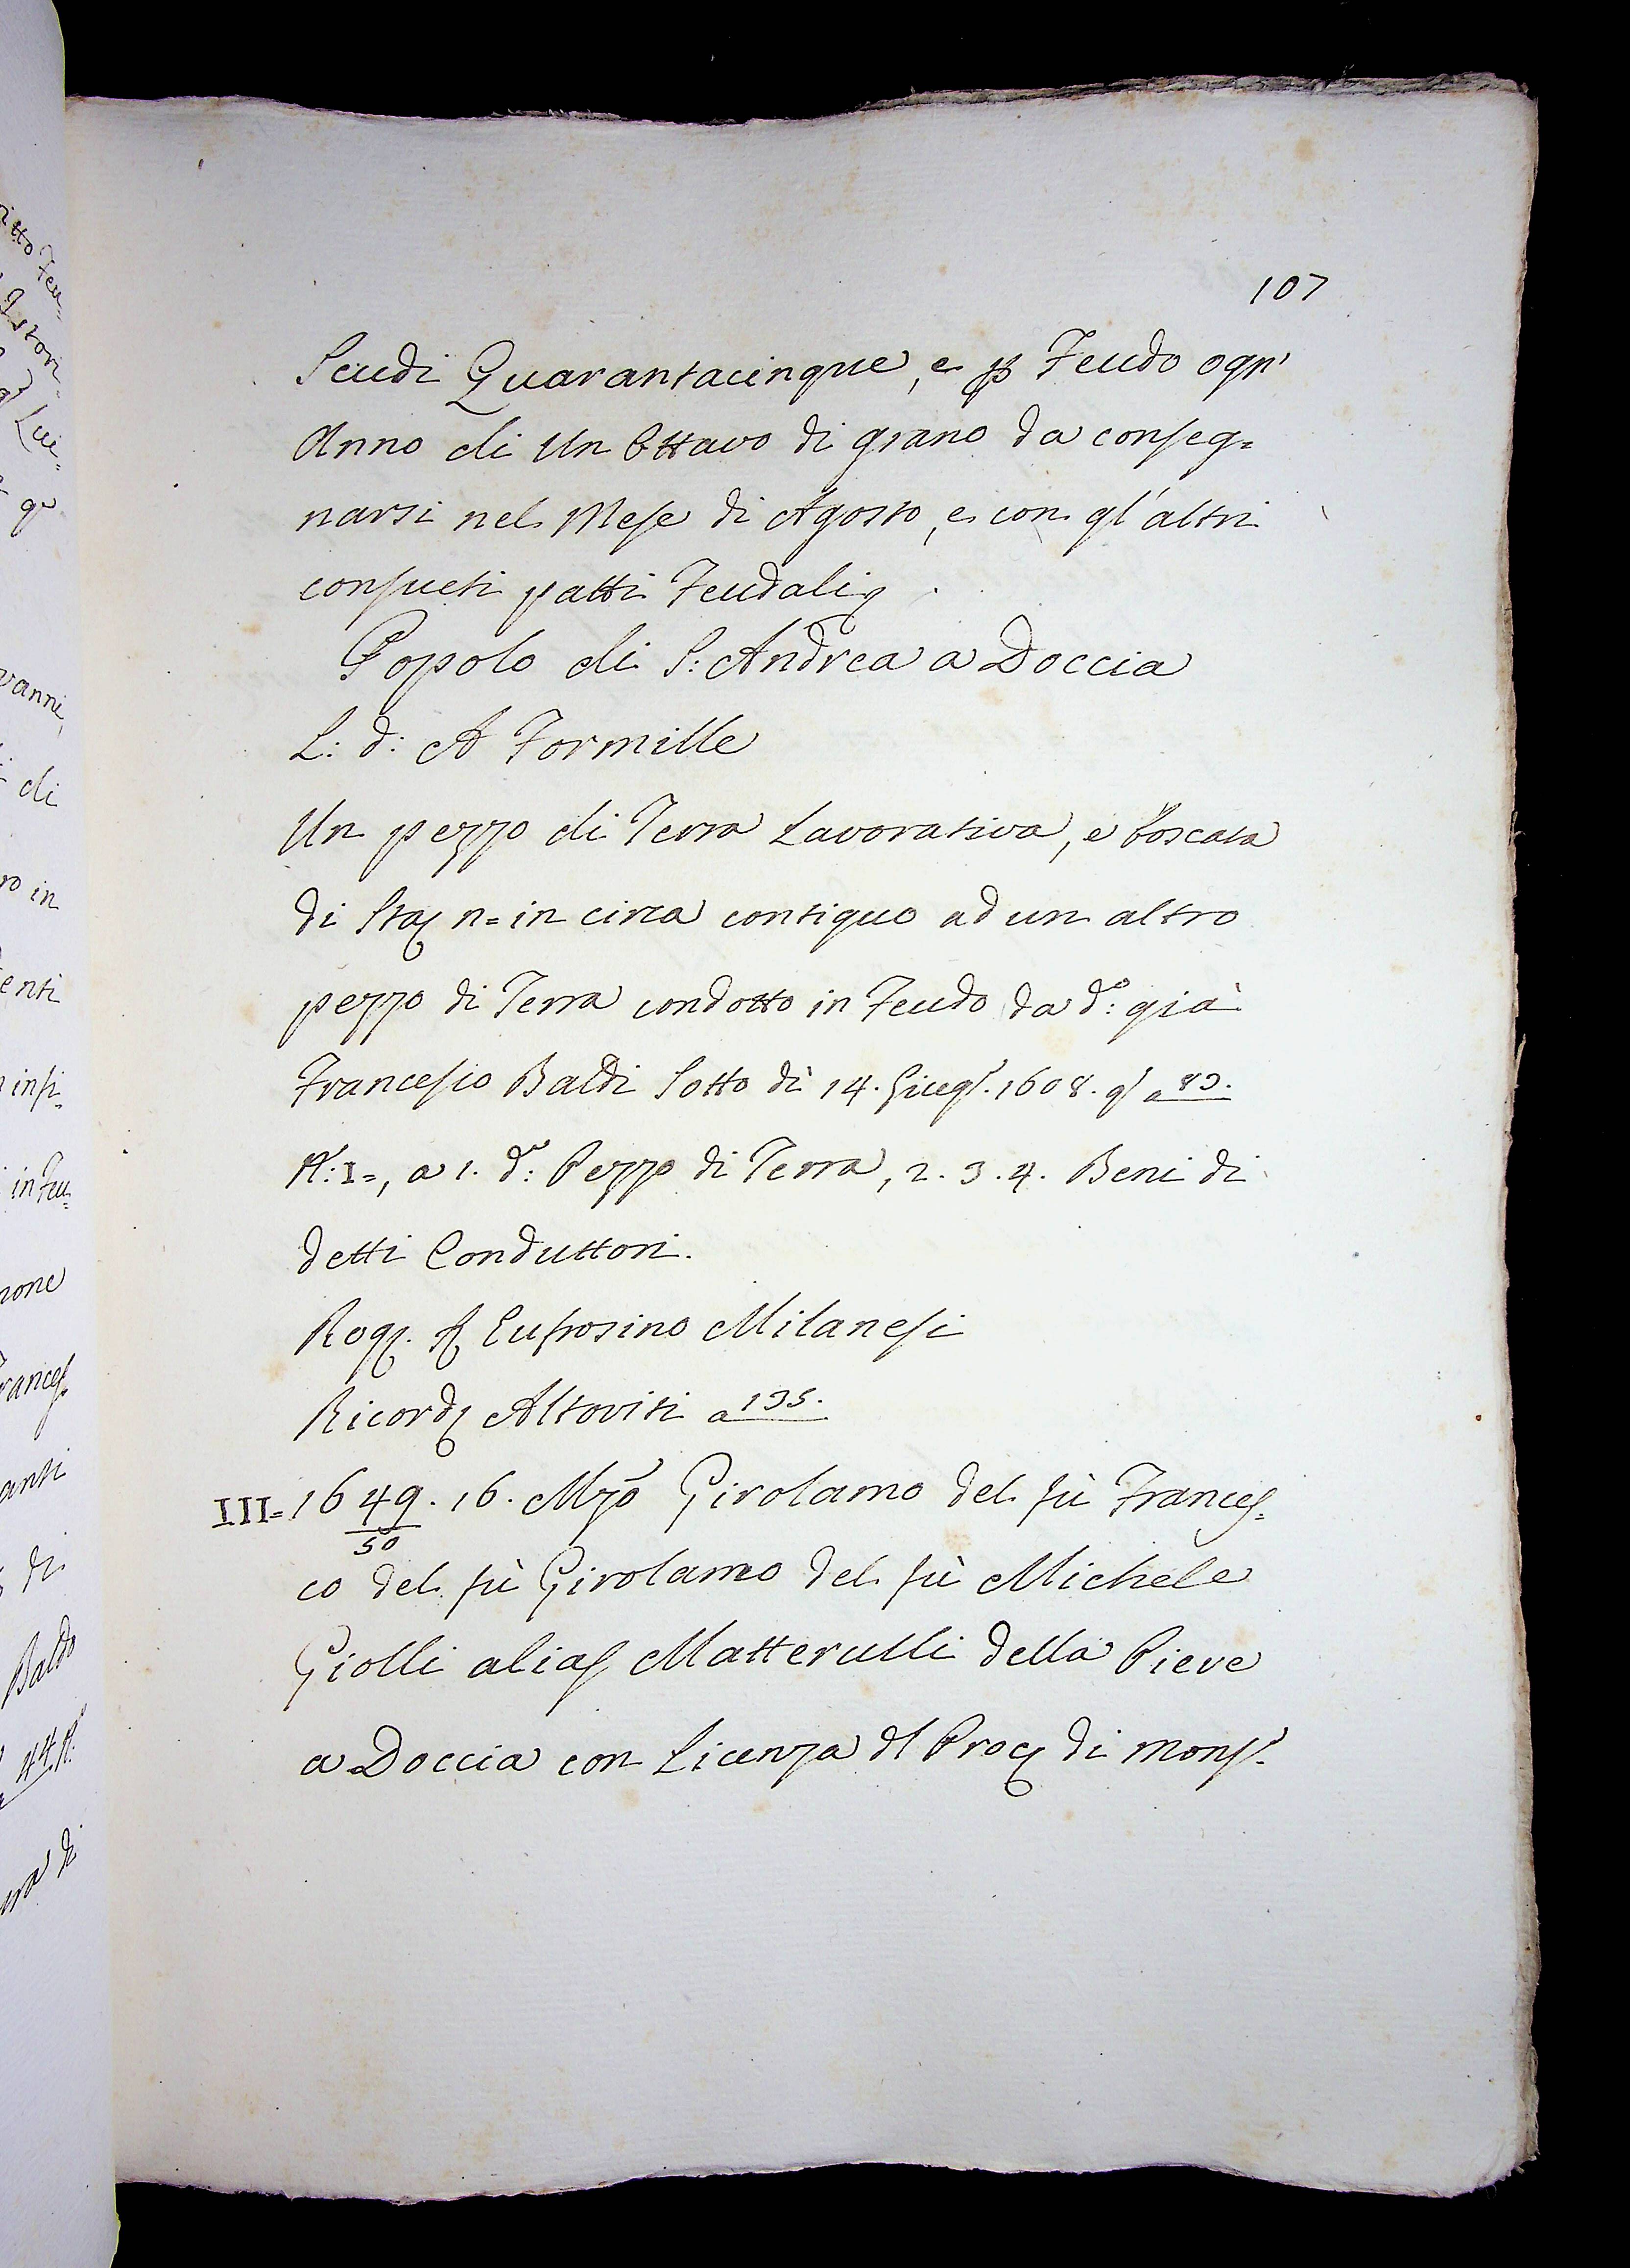 107
Scudi Quarantacinque, e p Feudo ogn'
Anno di Un Ottavo di grano da conseg=
narsi nel Mese di Agosto, e con gl'altri
consueti patti Feudali
Popolo di S: Andrea a Doccia
L: d: A Formille
Un pezzo di Terra Lavorativa, e boscata
di Sta n= in circa contiguo ad un altro
pezzo di Terra condotto in Feudo da d:º già
Francesco Baldi Sotto dì 14. Giug. 1608. a 83.
N: I=, a 1. d: Pezzo di Terra, 2. 3. 4. Beni di
detti Conduttori.
Rog. Eufrosino Milanesi
Ricord Altoviti a 135.
III= 1649/50. 16. Mzo Girolamo del fù Frances=
co del fù Girolamo del fù Michele
Giolli alias Matterulli della Pieve
a Doccia con Licenza dl Proc di Mons.